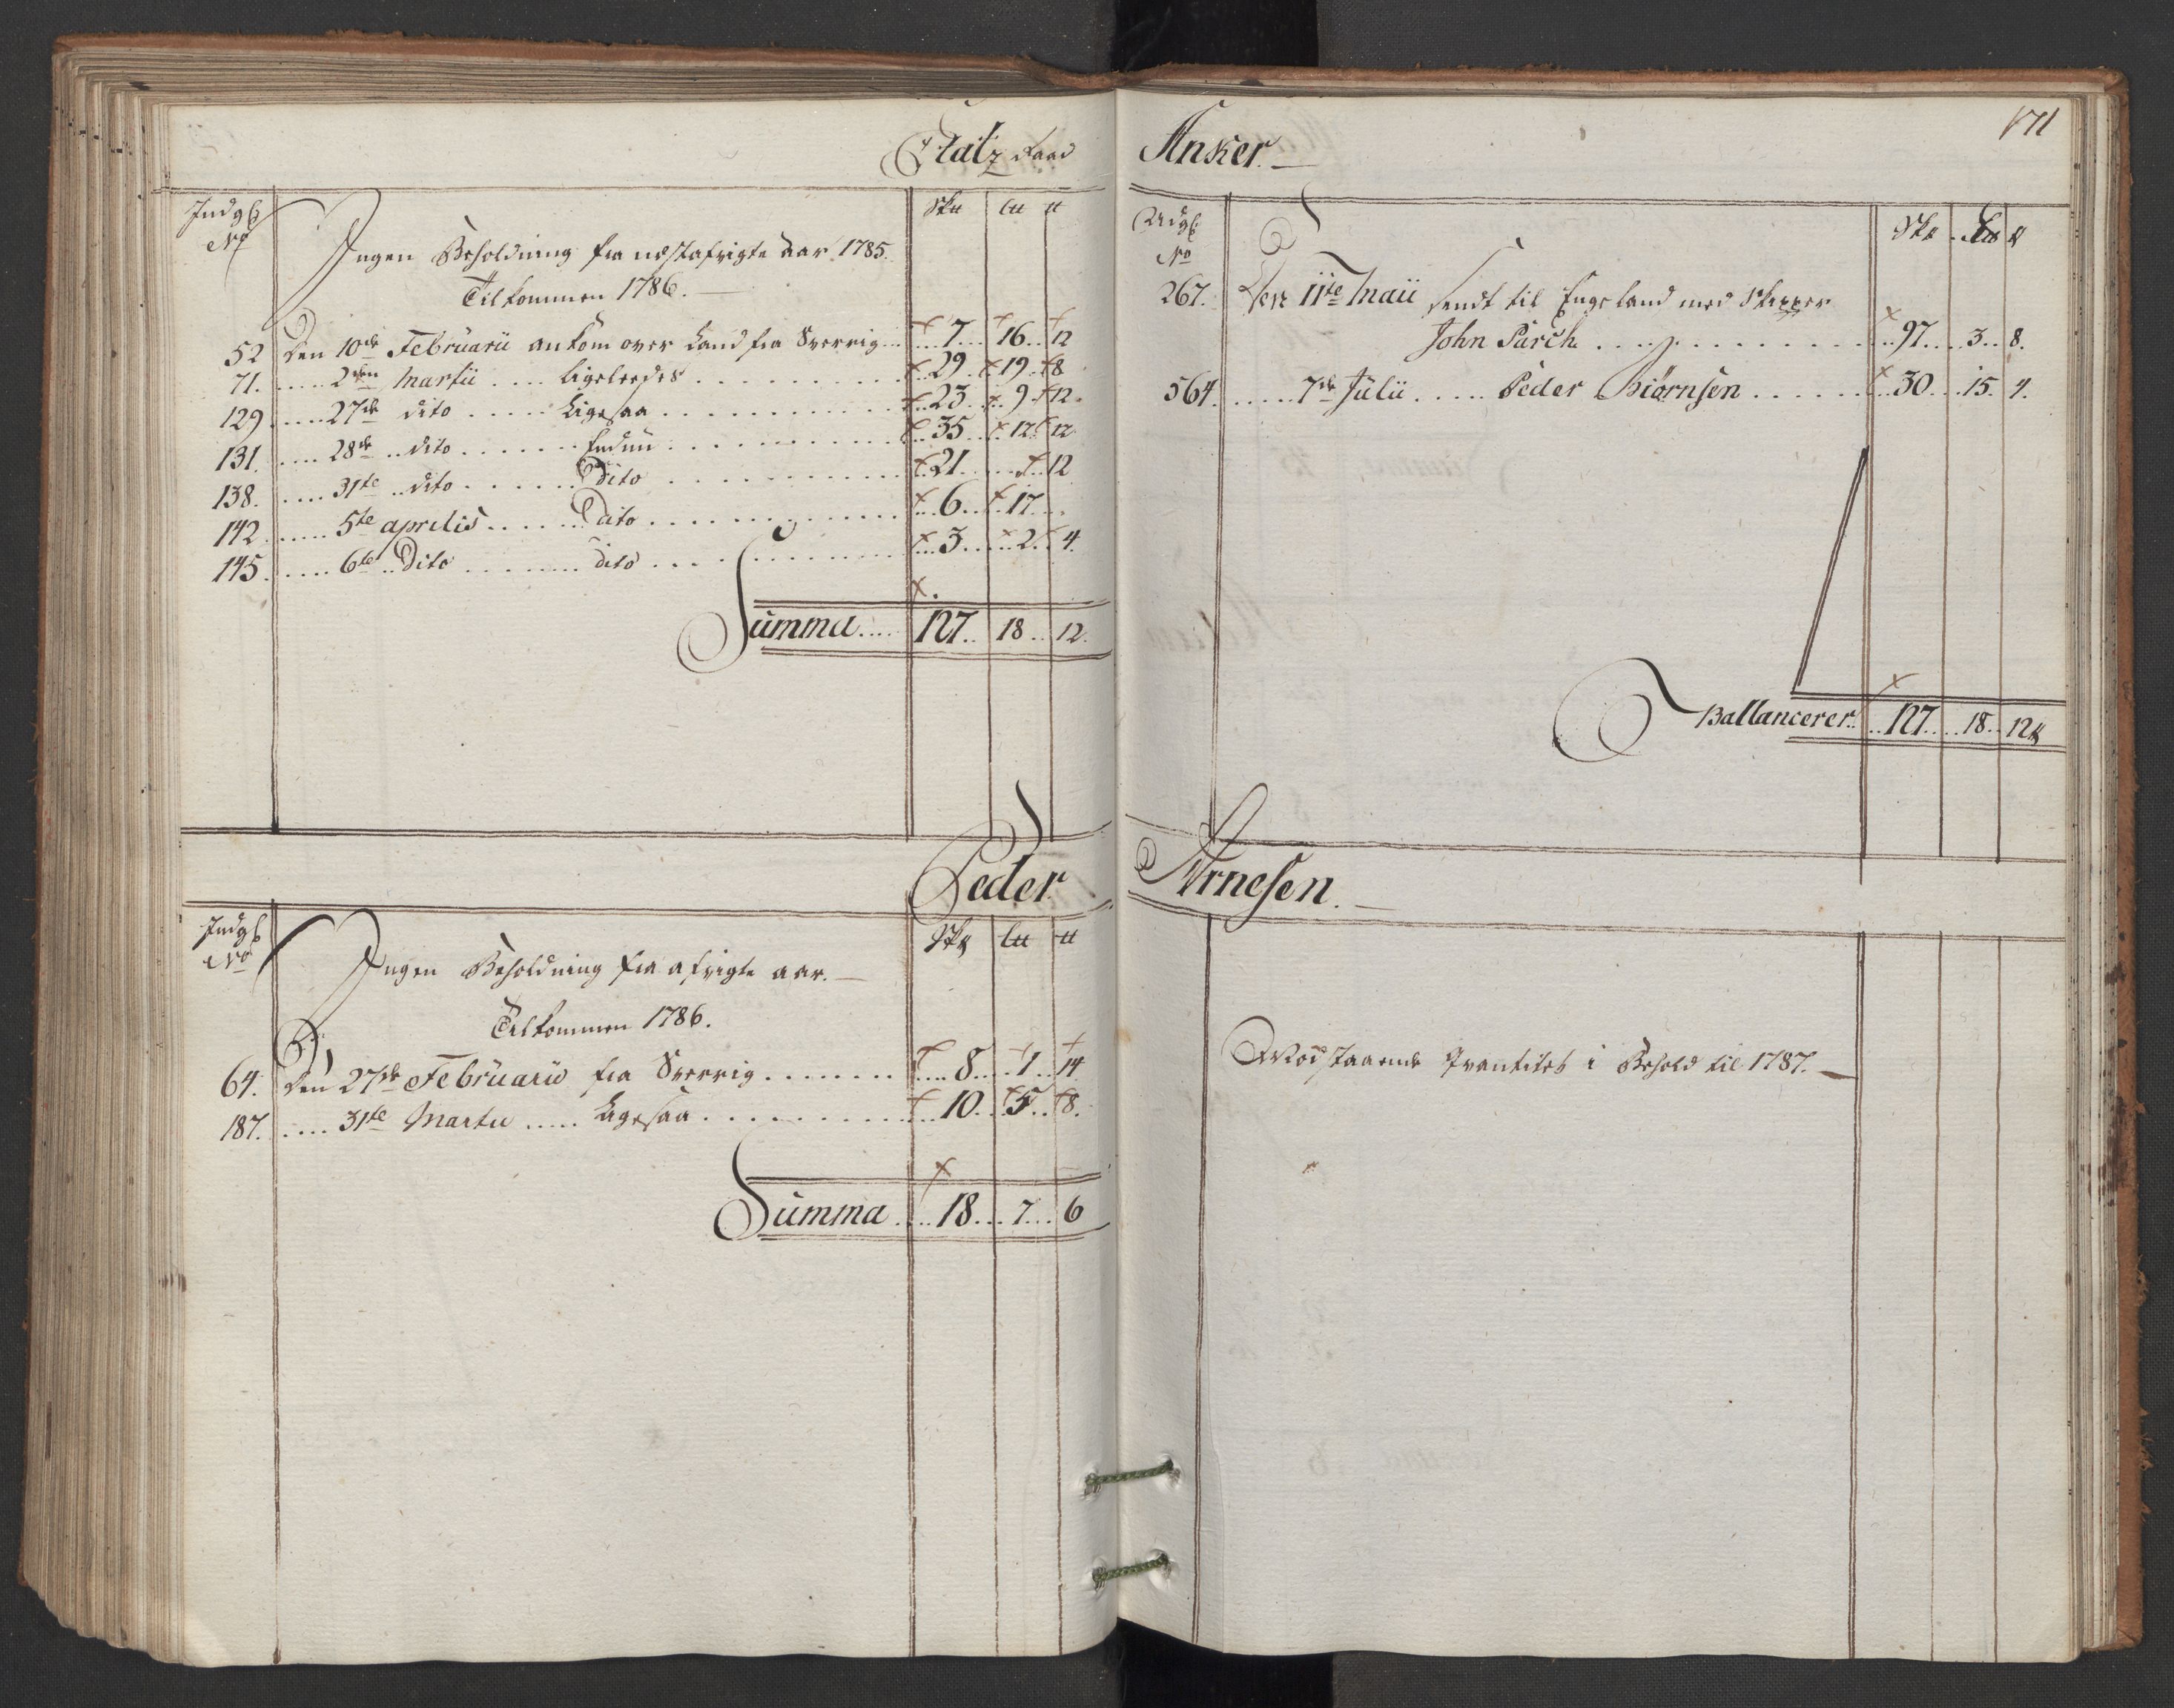 Etatz Raad
Indgß
No
Sk℔ L℔ ℔
Ingen Beholdning fra nestafvigte Aar 1785.
Tilkommen 1786.
52 Den 10de Februarii ankom over Land fra Sverrig... 7. 16. 12
71. .... 2den Martii .... Ligeleedes .... 29. 19. 8
129 .... 27de dito .... Ligesaa .... 23. 9. 12.
131. .... 28de dito .... Endnu .... 35. 12. 12
138. .... 31te dito .... Dito .... 21. .... 12
142. .... 5te aprilis .... Dito .... 6. 17.
145. .... 6te Dito .... dito .... 3. 2. 4.
Summa .... 127. 18. 12.
Peder
Indgß
No
Sk℔ L℔ ℔
Ingen Beholdning fra afvigte aar.
Tilkommen 1786.
64. Den 27de Februarii fra Sverrig .... 8. 1. 14
187. .... 31te Martii .... Ligesaa .... 10. 5. 8.
Summa .... 18. 7. 6
171
Anker.
Udgß
No
Sk℔ L℔ ℔
267. Den 11te Maii sendt til Engeland med Skipper
John Parch .... 97. 3. 8.
564. .... 7de Julii .... Peder Biørnsen .... 30. 15. 4.
Ballancerer. 127. 18. 12℔
Arnesen.
Modstaaende Qvantitet i Behold til 1787.